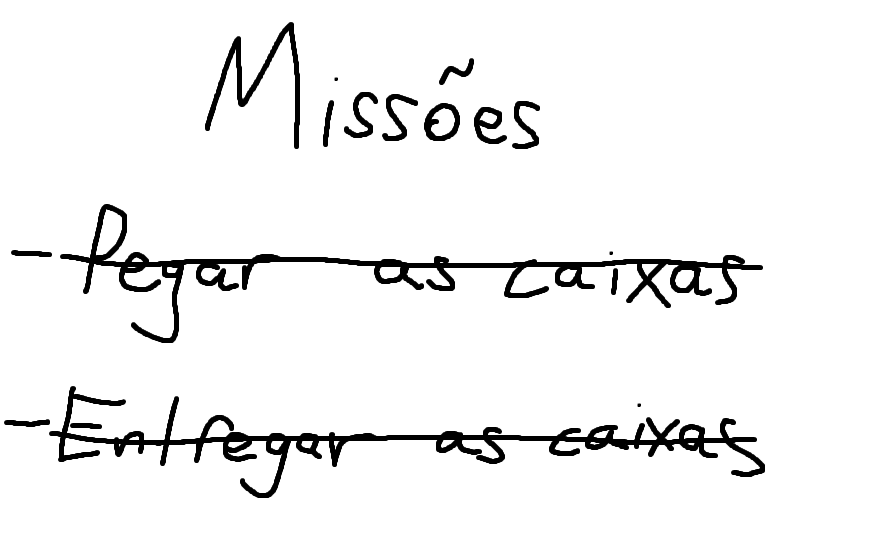 Missões
- Pegar as caixas
- Entregar as caixas